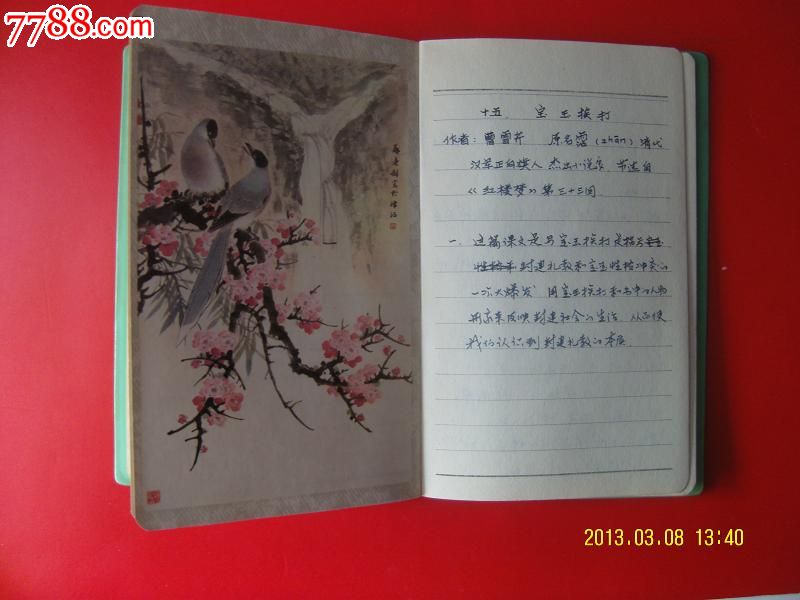 7788.com
十五 宝玉挨打
作者：曹雪芹 原名霑（zhān）清代
汉军正白旗人 杰出小说家 节选自
《红楼梦》第三十三回
一. 这篇课文是写宝玉挨打是
封建礼教和宝玉性格冲突的
一次大爆发 用宝玉挨打和书中的人物
来反映封建社会的生活 从而使
我们认识到封建礼教的本质
2013.03.08 13:40